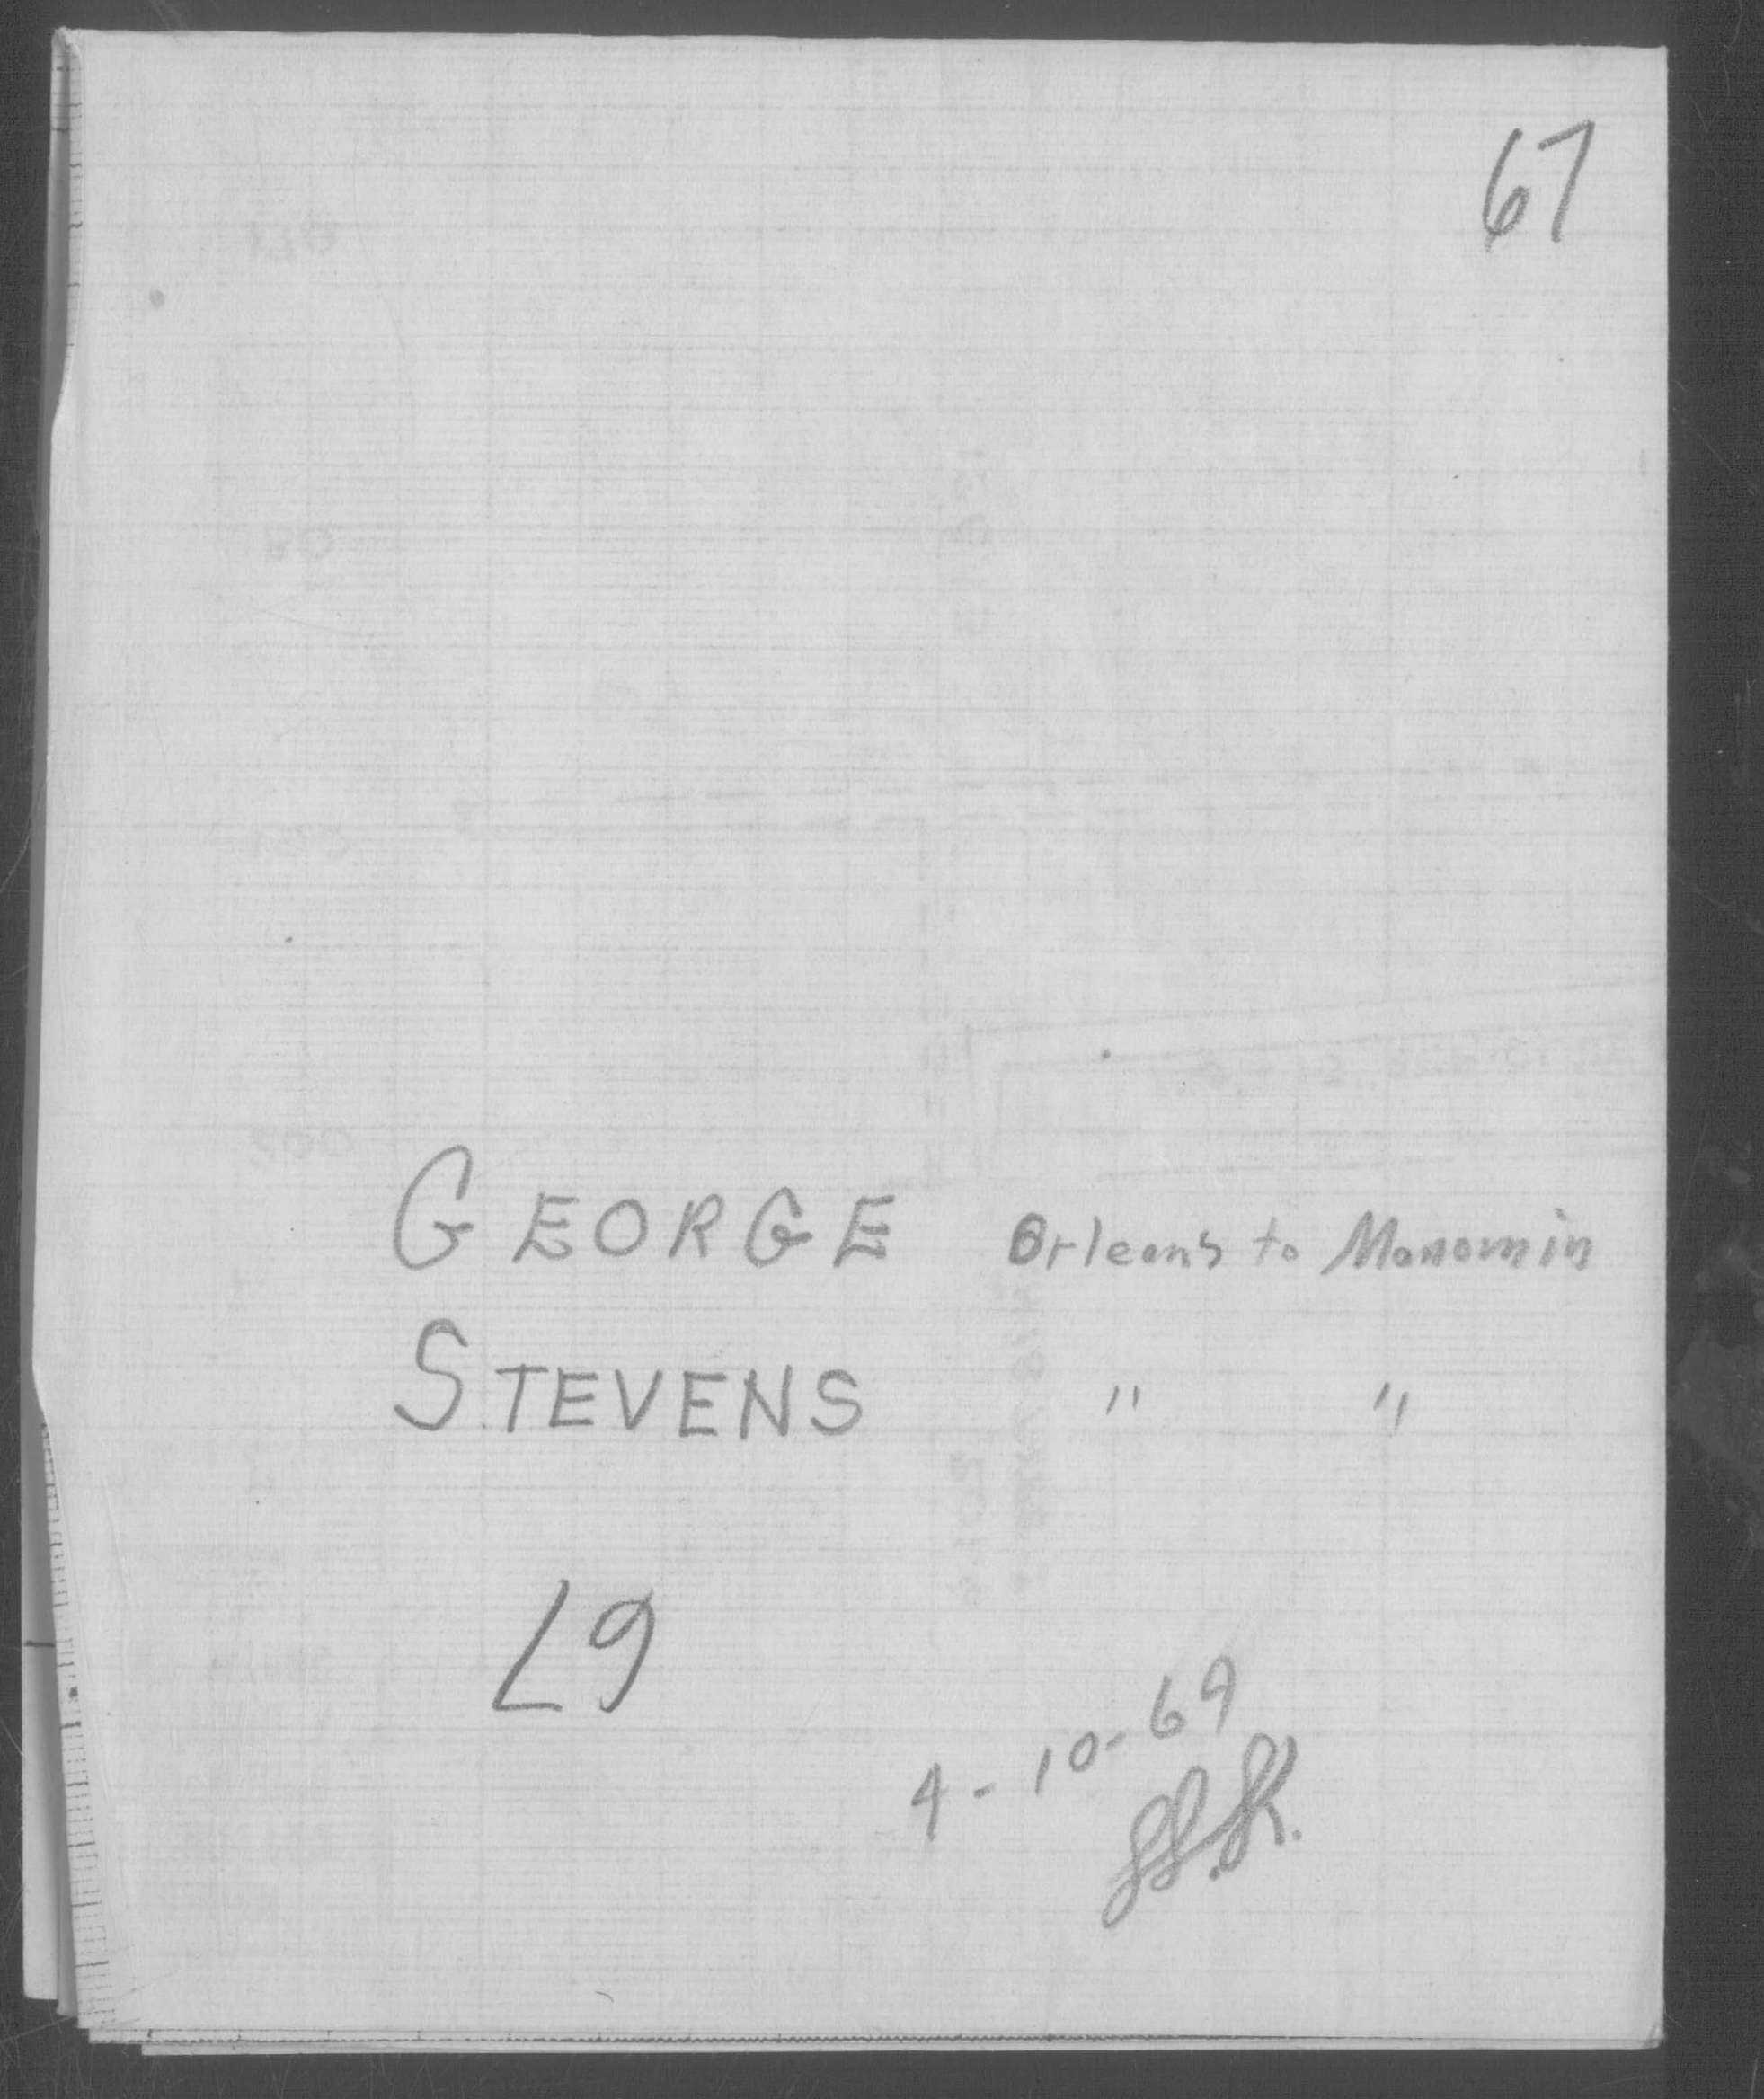 67
GEORGE Orleans to Monomin
STEVENS " "
67
4-10-69